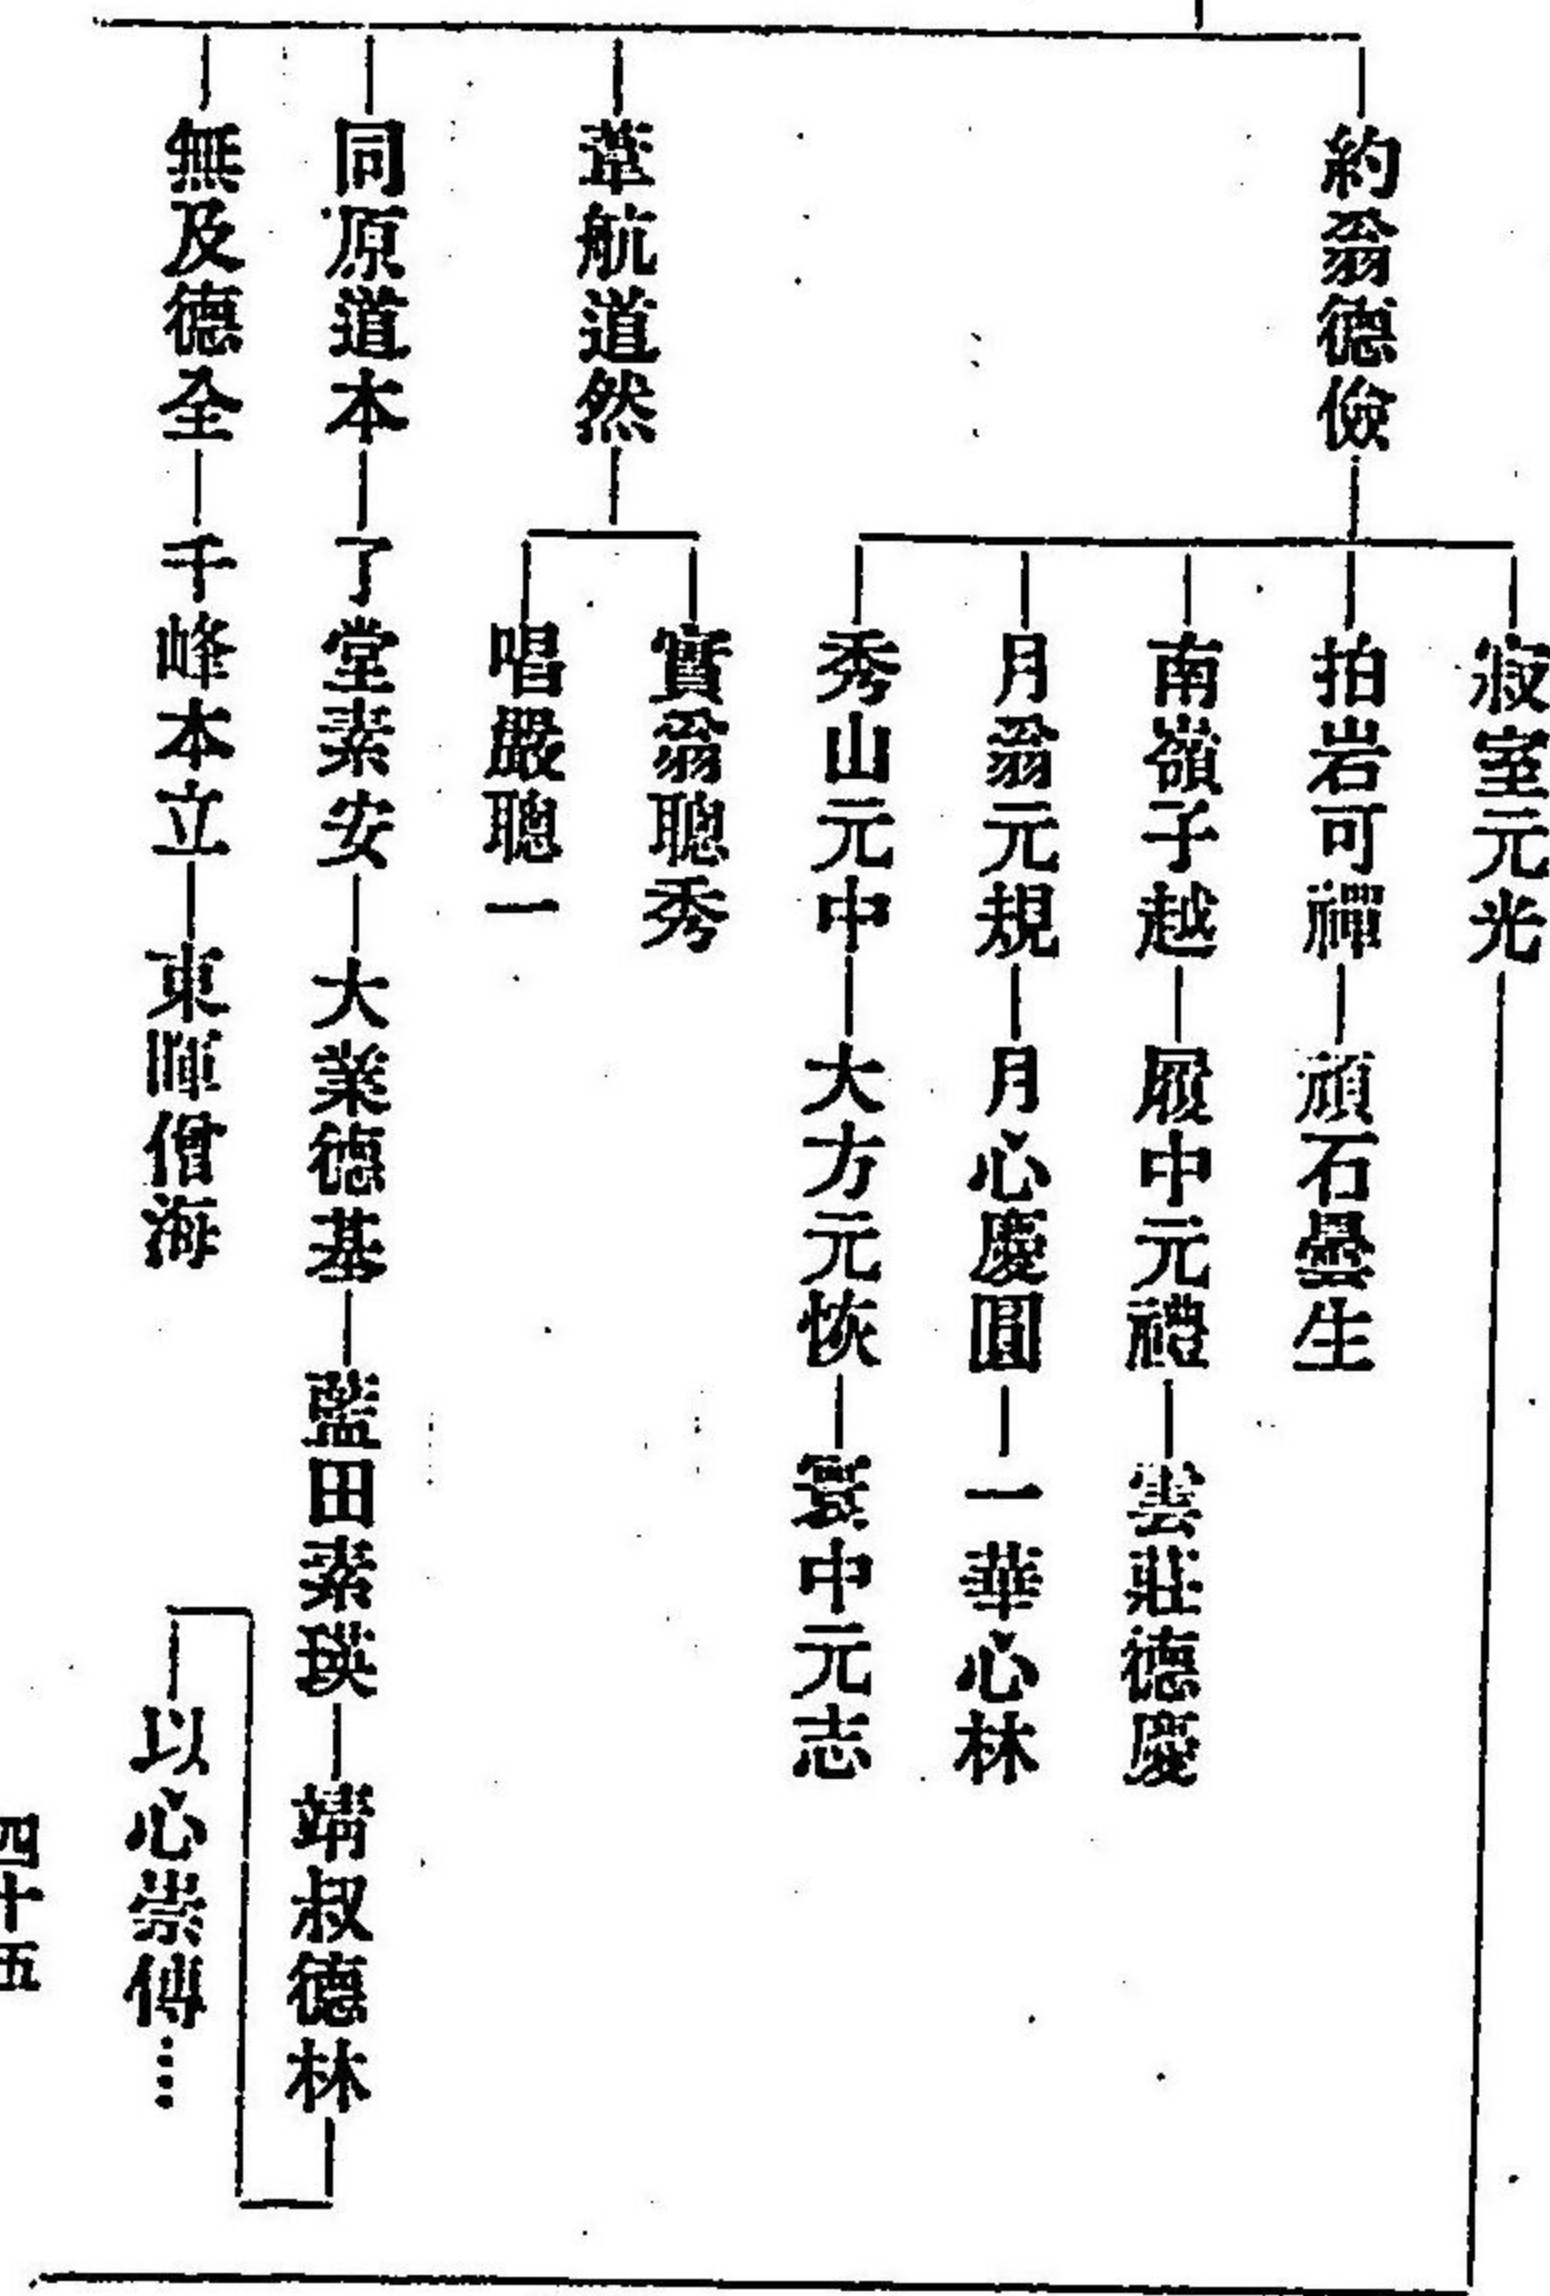 約翁德儉
寂室元光
拍岩可禪—頑石曇生
南嶺子越—履中元禮—雲莊德慶
月翁元規—月心慶圓—一華心林
秀山元中—大方元恢—寰中元志
葦航道然
實翁聰秀
唱巖聰一
同原道本—了堂素安—大業德基—藍田素瑛—靖叔德林
以心崇傳……
無及德全—千峰本立—東暉僧海
四十五